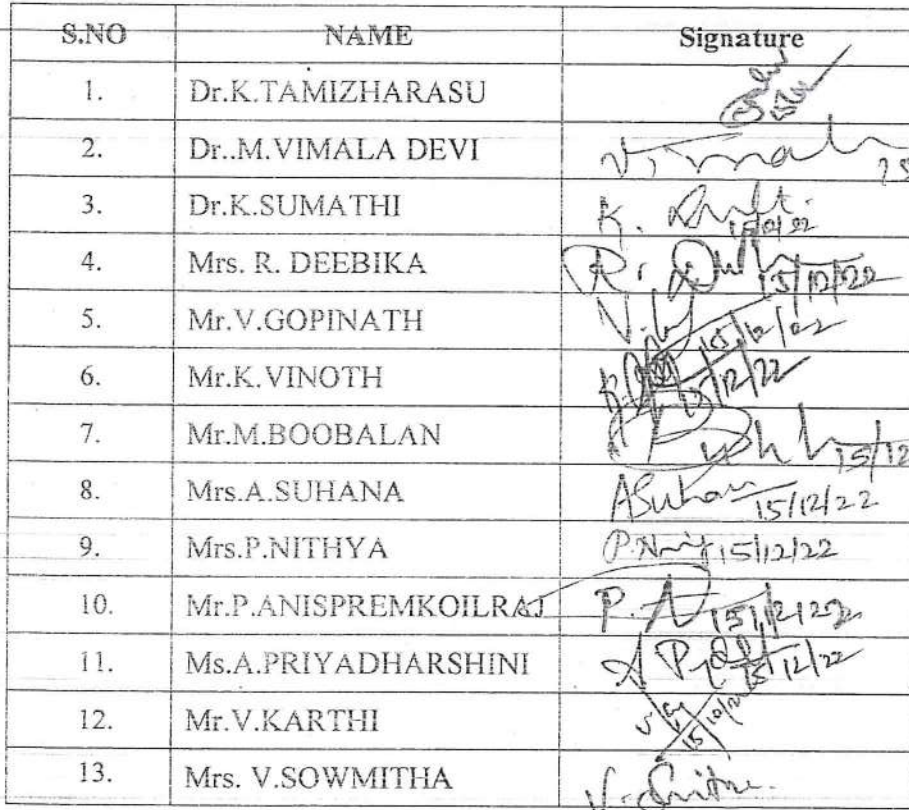 S.NO NAME Signature
1. Dr.K.TAMIZHARASU
2. Dr..M.VIMALA DEVI
3. Dr.K.SUMATHI K.
4. Mrs. R. DEEBIKA R. 15/12/22
5. Mr.V.GOPINATH V. 15/12/22
6. Mr.K.VINOTH 15/12/22
7. Mr.M.BOOBALAN 15/12
8. Mrs.A.SUHANA ASuhana 15/12/22
9. Mrs.P.NITHYA P. 15/12/22
10. Mr.P.ANISPREMKOILRAJ P. 15/12/22
11. Ms.A.PRIYADHARSHINI 15/12/22
12. Mr.V.KARTHI
13. Mrs. V.SOWMITHA V.